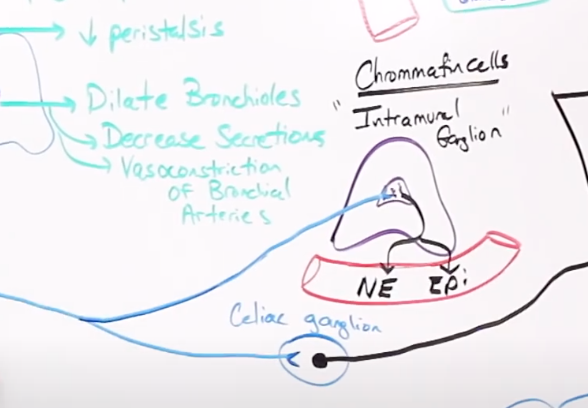 ↓ peristalsis
Dilate Bronchioles
Decrease Secretions
Vasoconstriction
of Bronchial
Arteries
Chrommafin cells
"Intramural
Ganglion"
NE EPi
Celiac ganglion